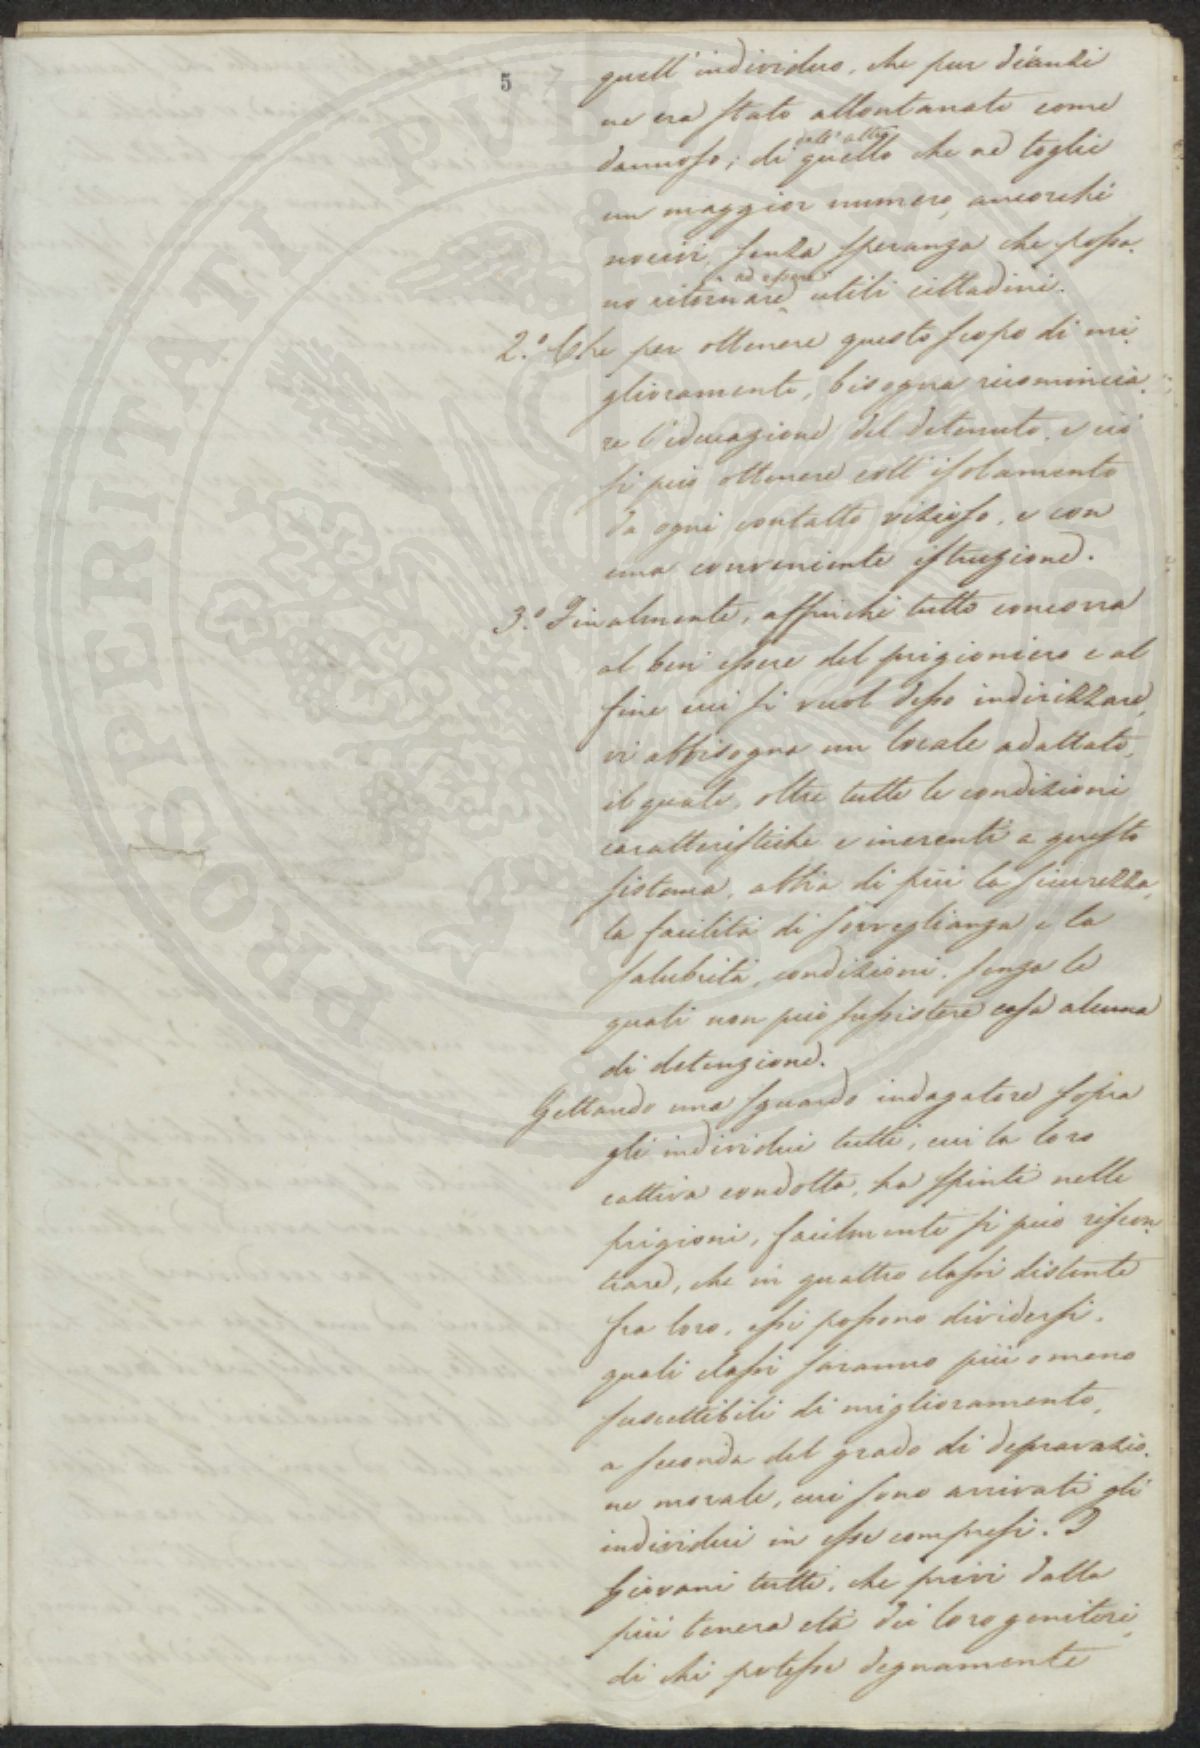 5
quell' individuo, che pur dianzi
ne era stato allontanato come
dannoso; di quello che ne toglie
dall' altro
un maggior numero, ancorchè
nocivi, senza speranza che posso-
no ritornare utili cittadini.
ad essere
2.° Che per ottenere questo scopo di mi-
glioramento, bisogna ricomincia-
re l'educazione del detenuto, e ciò
si può ottenere coll' isolamento
da ogni contatto vizioso, e con
una conveniente istruzione.
3.° Finalmente, affinchè tutto concorra
al ben' essere del prigioniero e al
fine cui si vuol desso indirizzare,
vi abbisogna un locale adattato,
il quale, oltre tutte le condizioni
caratteristiche e inerenti a questo
sistema, abbia di più la sicurezza,
la facilità di sorveglianza e la
salubrità, condizioni, senza le
quali non può sussistere casa alcuna
di detenzione.
Gettando uno sguardo indagatore sopra
gli individui tutti, cui la loro
cattiva condotta, ha spinti nelle
prigioni, facilmente si può riscon-
trare, che in quattro classi distinte
fra loro, essi possono dividersi,
quali classi saranno più o meno
suscettibili di miglioramento,
a seconda del grado di depravazio-
ne morale, cui sono arrivati gli
individui in esse compresi. I
Giovani tutti, che privi dalla
più tenera età dei loro genitori,
di chi potesse degnamente
PROSPERITATI PUBLICAE